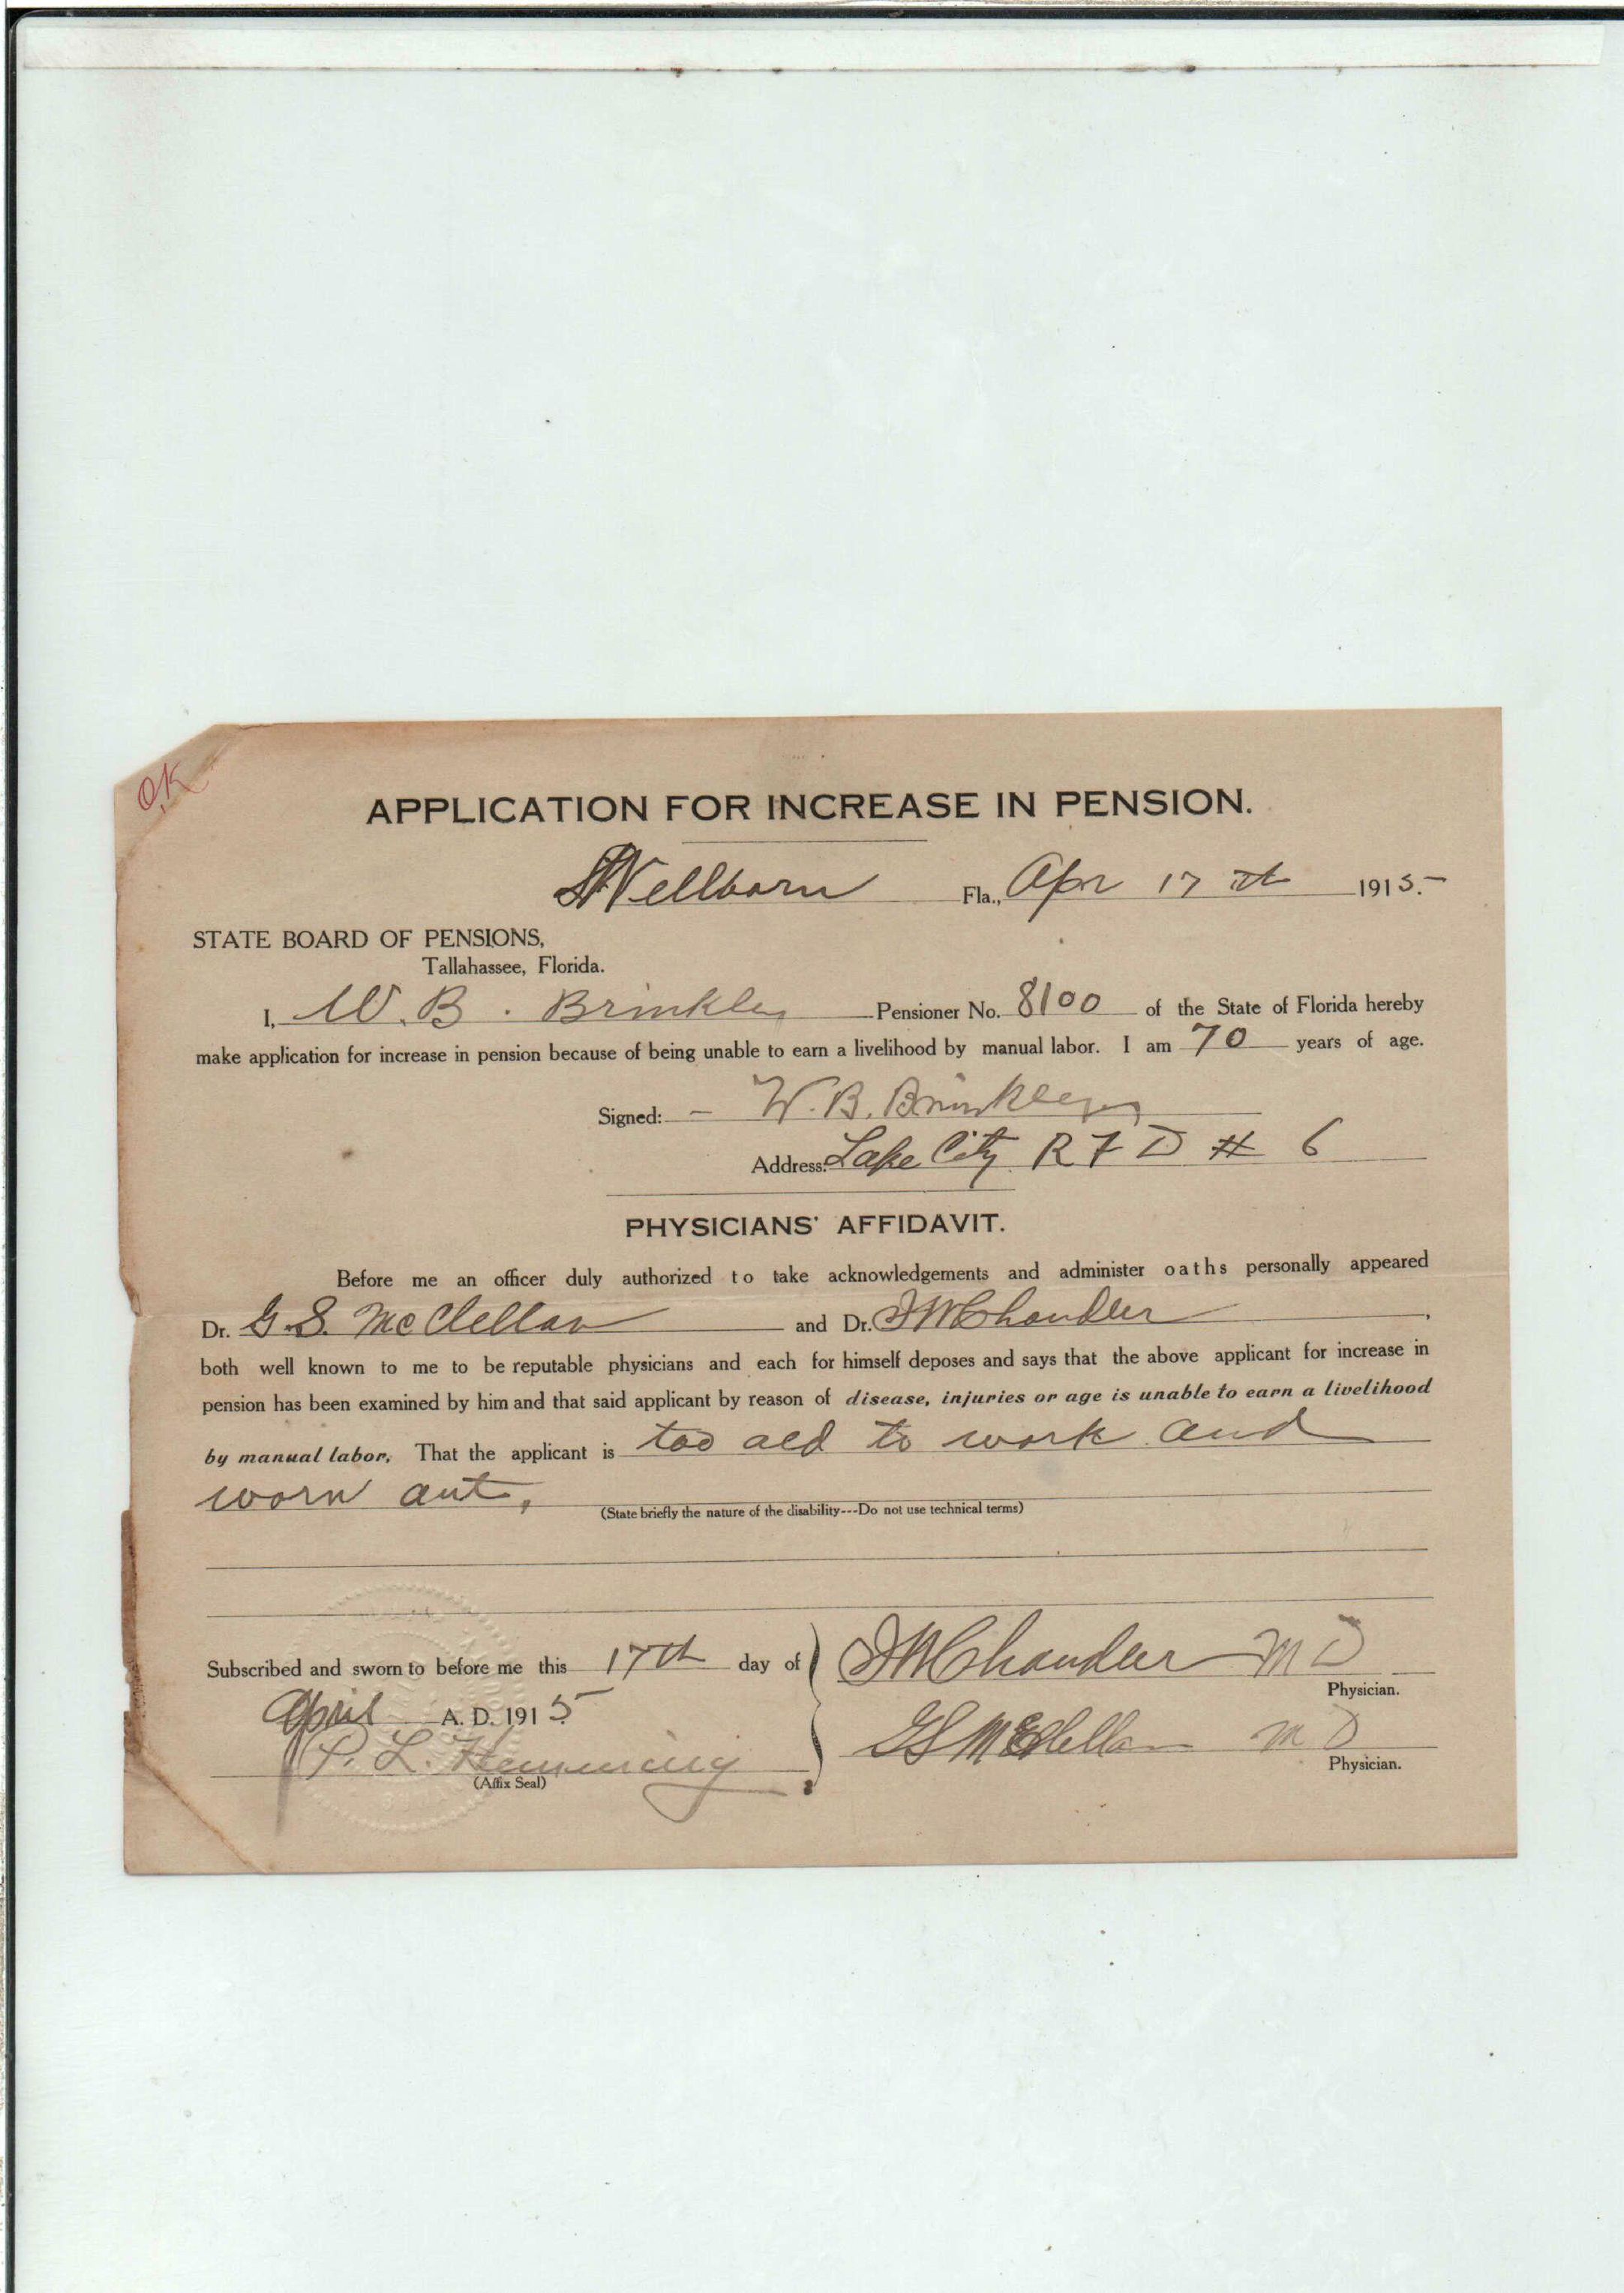 O.K
APPLICATION FOR INCREASE IN PENSION.
Wellborn Fla., Apr 17th 1915.
STATE BOARD OF PENSIONS,
Tallahassee, Florida.
I, W. B. Brinkley Pensioner No. 8100 of the State of Florida hereby
make application for increase in pension because of being unable to earn a livelihood by manual labor. I am 70 years of age.
Signed: W. B. Brinkley
Address: Lake City R F D # 6
PHYSICIANS' AFFIDAVIT.
Before me an officer duly authorized to take acknowledgements and administer oaths personally appeared
Dr. G. S. McClellan and Dr. Chandler,
both well known to me to be reputable physicians and each for himself deposes and says that the above applicant for increase in
pension has been examined by him and that said applicant by reason of disease, injuries or age is unable to earn a livelihood
by manual labor. That the applicant is too old to work and
worn out,
(State briefly the nature of the disability---Do not use technical terms)
Subscribed and sworn to before me this 17th day of
April A. D. 1915
P. L. Hemming
(Affix Seal)
Chandler M D
Physician.
G S McClellan M D
Physician.